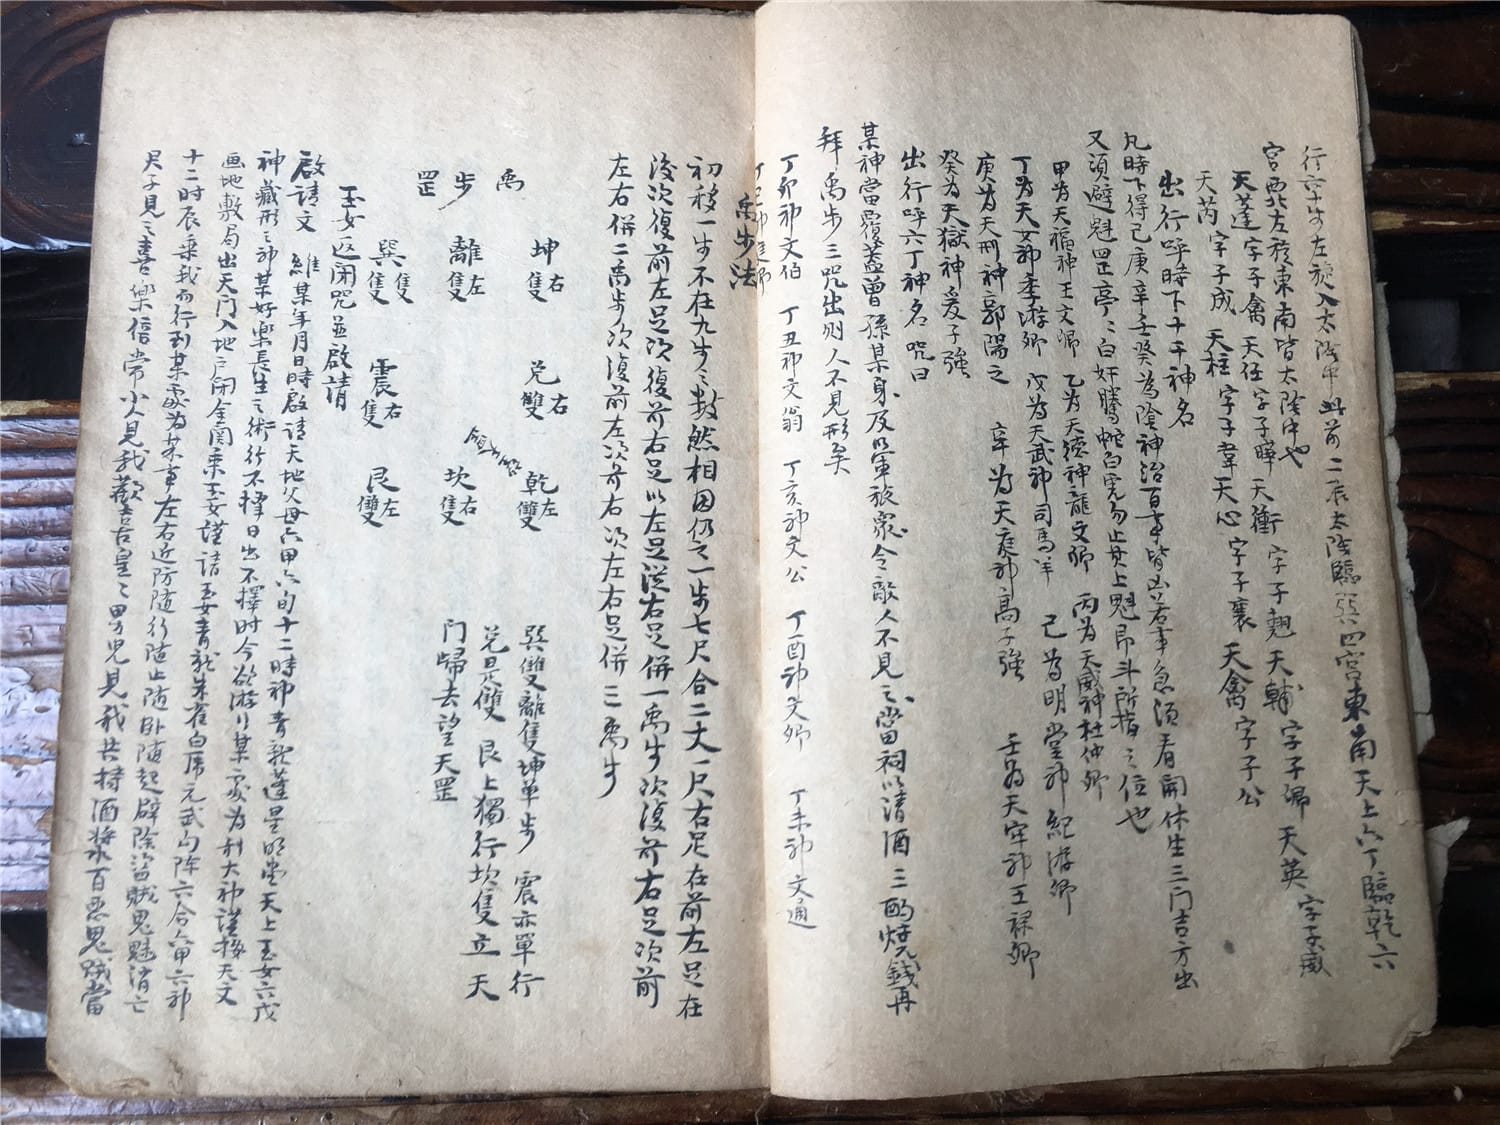 行六十步左旋入太陰中此前二辰太陰臨巽四宮東南天上六丁臨乾六
宮西北左旋東南皆太陰中也
天蓬字子禽 天任字子暉 天衝字子翹 天輔字子卿 天英字子威
天芮字子成 天柱字子韋 天心字子襄 天禽字子公
出行呼時下十干神名
凡時下得己庚辛壬癸為陰神治百事皆凶若事急須看開休生三门吉方出
又須避魁罡亭亭白奸騰蛇白虎勿止其上魁昂斗所指之位也
甲為天福神王文卿 乙為天德神龍文卿 丙為天威神杜仲卿
丁為天女神季游卿 戊為天武神司馬羊 己為明堂神紀游卿
庚為天刑神郭陽之 辛為天庭神高子強 壬為天牢神王祿卿
癸為天獄神爰子強
出行呼六丁神名咒曰
某神當覆蓋曾孫某身及以軍旅眾令敵人不見之當祠以清酒三酌燒錢再
拜禹步三咒出则人不見形矣
丁卯神文伯 丁丑神文翁 丁亥神文公 丁酉神文卿 丁未神文通
丁巳神庭卿
禹步法
初移一步不在九步之數然相因仍之一步七尺合二丈一尺右足在前左足在
後次復前左足次復前右足以左足從右足併一禹步次復前右足次前
左右併二禹步次復前左次前右次左右足併三禹步
禹步罡
坤右隻 兌右雙 乾左雙
離左隻 坎右隻
巽雙隻 震右隻 艮左雙
巽雙離隻坤單步 震亦單行
兌是雙 艮上獨行坎隻立 天
门歸去望天罡
玉女返闭咒並啟請
啟請文 維某年月日時啟請天地父母六甲六旬十二時神青龍蓬星明堂天上玉女六戊
神藏形之神某好樂長生之術行不擇日出不擇时今欲游行某處為利大神謹按天文
画地敷局出天门入地户闭金關乘玉女謹請玉女青龙朱雀白虎元武勾陈六合六甲六神
十二时辰乘我而行到某處為某事左右近防随行随止随卧随起辟除盜贼鬼魅消亡
君子見之喜樂倍常小人見我歡喜皇皇男兒見我共持酒漿百惡鬼贼當